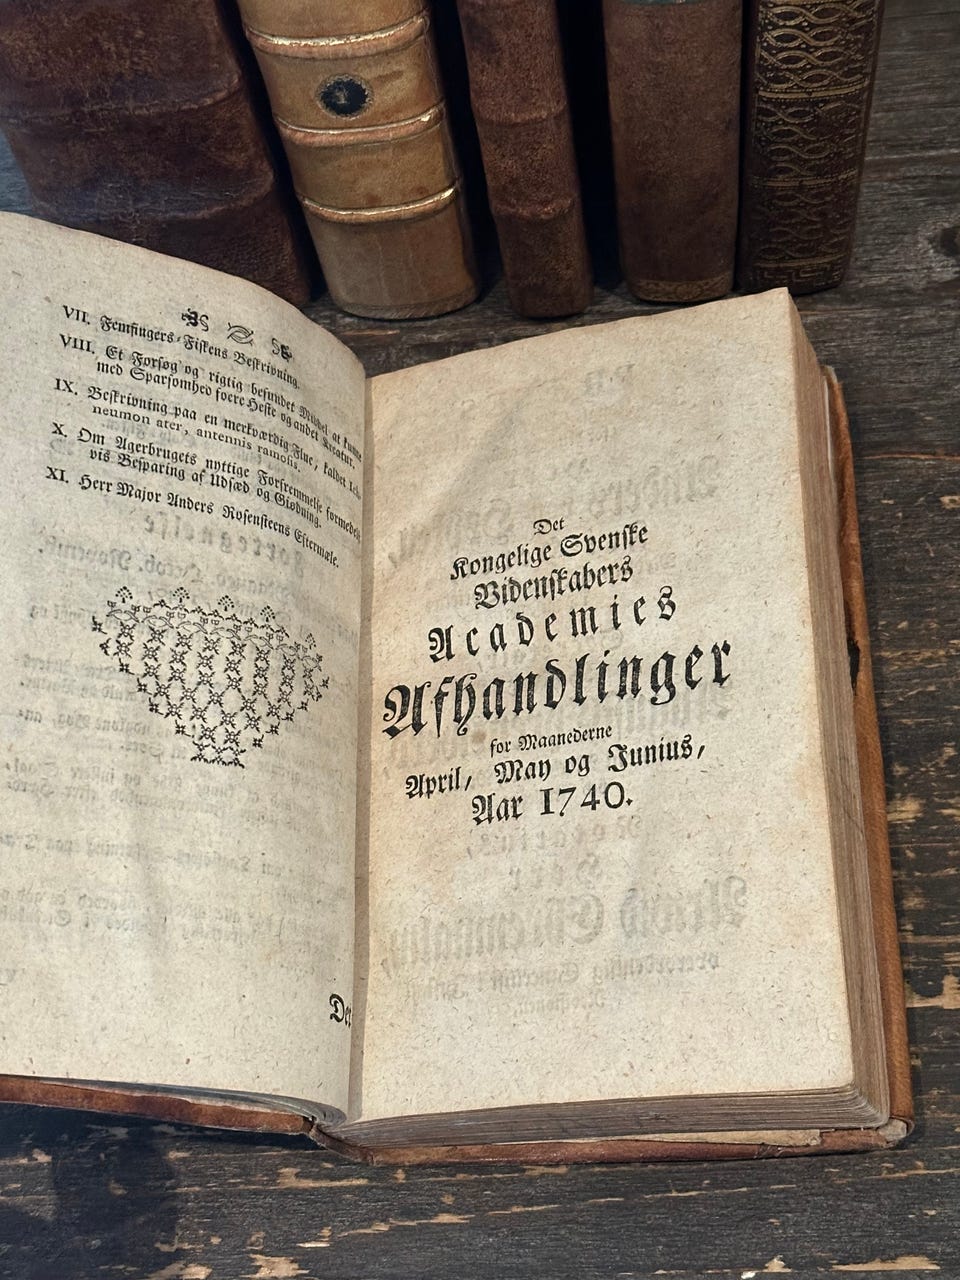 VII. Femfingers-Fiskens Beskrivning.
VIII. Et Forsøg og rigtig befundet Middel at kunne
med Sparsomhed foere Heste og andet Kreatur.
IX. Beskrivning paa en merkværdig Flue, kaldet Ich-
neumon ater, antennis ramosis.
X. Om Agerbrugets nyttige Forfremmelse formedelst
vis Besparing af Udsæd og Giødning.
XI. Herr Major Anders Rosensteens Eftermæle.
Det
Det
Kongelige Svenske
Videnskabers
Academies
Afhandlinger
for Maanederne
April, May og Junius,
Aar 1740.